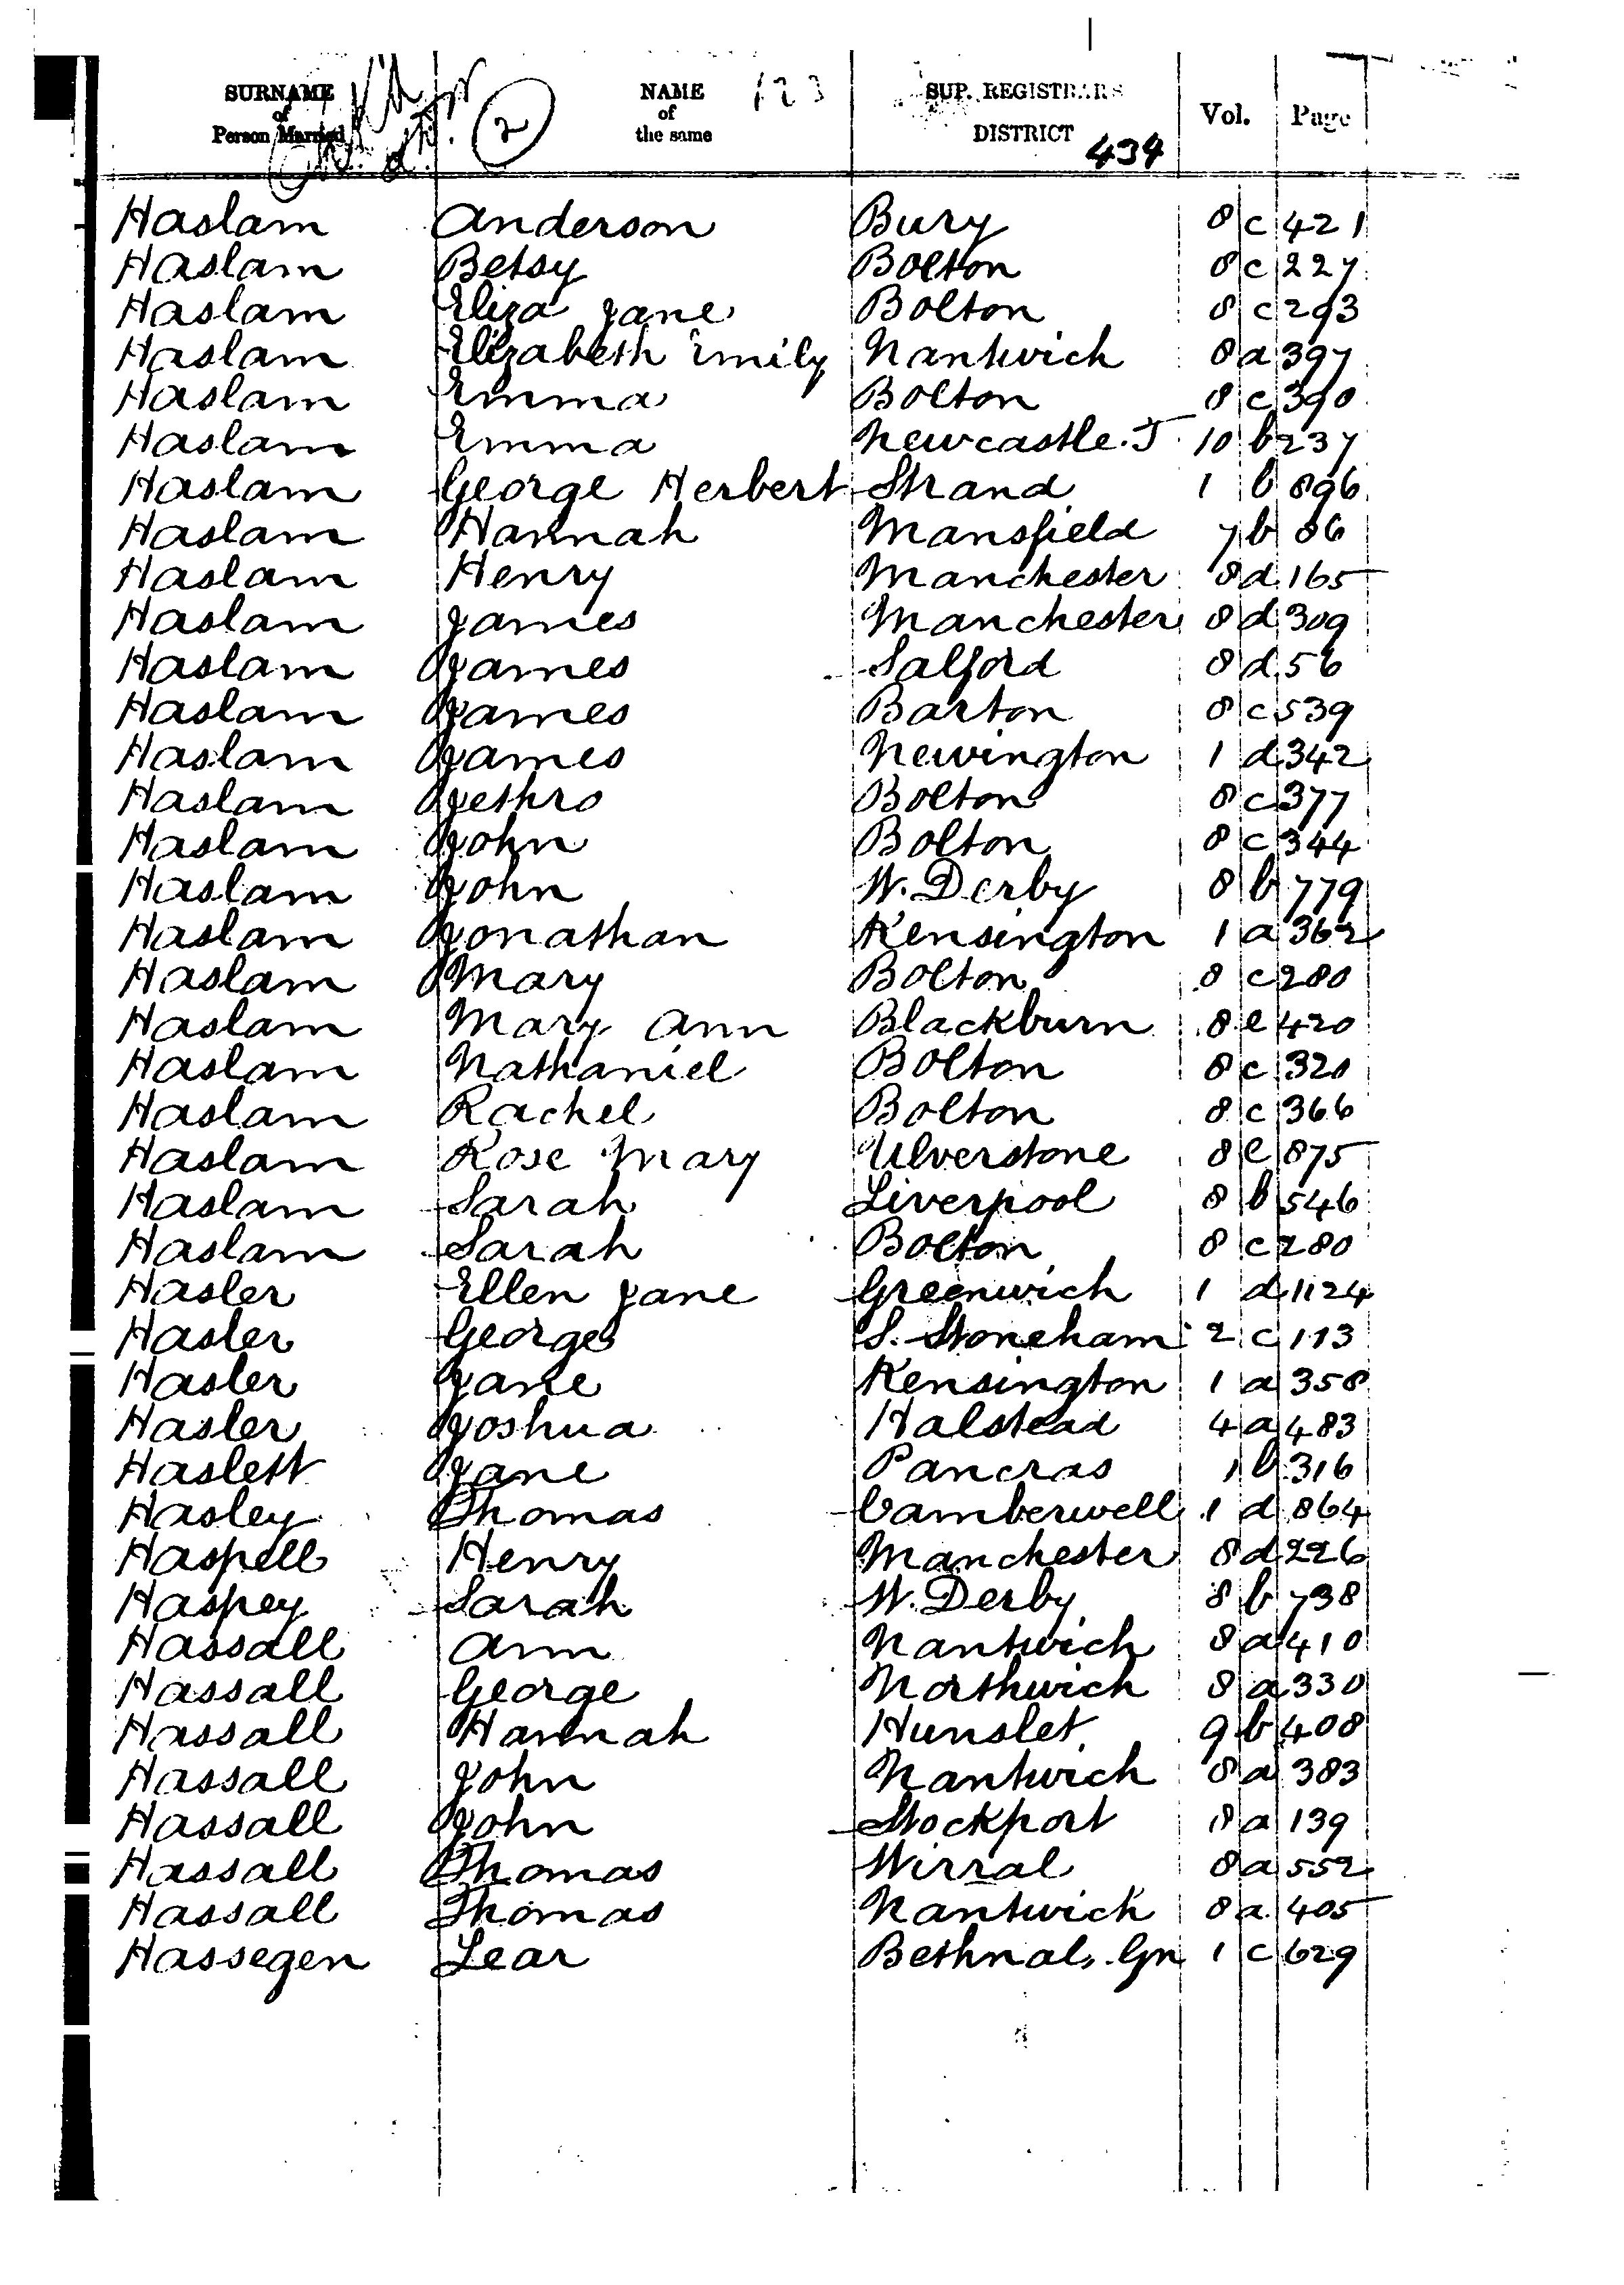 SURNAME of Person Married
NAME of the same
SUP. REGISTRARS DISTRICT
Vol.
Page
2
123
434
Haslam Anderson Bury 8 c 421
Haslam Betsy Bolton 8 c 227
Haslam Eliza Jane Bolton 8 c 293
Haslam Elizabeth Emily Nantwich 8 a 397
Haslam Emma Bolton 8 c 390
Haslam Emma Newcastle. T 10 b 237
Haslam George Herbert Strand 1 b 896
Haslam Hannah Mansfield 7 b 86
Haslam Henry Manchester 8 d 165
Haslam James Manchester 8 d 309
Haslam James Salford 8 d 56
Haslam James Barton 8 c 539
Haslam James Newington 1 d 342
Haslam Jethro Bolton 8 c 377
Haslam John Bolton 8 c 344
Haslam John W. Derby 8 b 779
Haslam Jonathan Kensington 1 a 362
Haslam Mary Bolton 8 c 280
Haslam Mary Ann Blackburn 8 e 420
Haslam Nathaniel Bolton 8 c 320
Haslam Rachel Bolton 8 c 366
Haslam Rose Mary Ulverstone 8 e 875
Haslam Sarah Liverpool 8 b 546
Haslam Sarah Bolton 8 c 280
Hasler Ellen Jane Greenwich 1 d 1124
Hasler George S. Stoneham 2 c 113
Hasler Jane Kensington 1 a 358
Hasler Joshua Halstead 4 a 483
Haslett Jane Pancras 1 b 316
Hasley Thomas Camberwell 1 d 864
Haspell Henry Manchester 8 d 226
Haspey Sarah W. Derby 8 b 738
Hassall Ann Nantwich 8 a 410
Hassall George Northwich 8 a 330
Hassall Hannah Hunslet 9 b 408
Hassall John Nantwich 8 a 383
Hassall John Stockport 8 a 139
Hassall Thomas Wirral 8 a 552
Hassall Thomas Nantwich 8 a 405
Hassegen Lear Bethnal. Gn 1 c 629